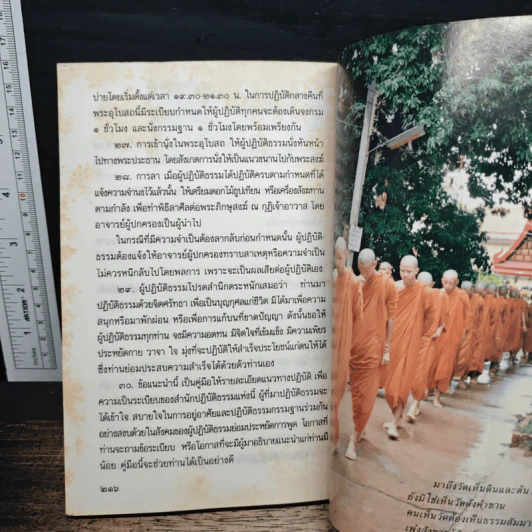 บ่ายโดยเริ่มตั้งแต่เวลา ๑๙.๓๐-๒๑.๓๐ น. ในการปฏิบัติกลางคืนที่
พระอุโบสถนี้มีระเบียบกำหนดให้ผู้ปฏิบัติทุกคนจะต้องเดินจงกรม
๑ ชั่วโมง และนั่งกรรมฐาน ๑ ชั่วโมงโดยพร้อมเพรียงกัน
๒๗. การเข้านั่งในพระอุโบสถ ให้ผู้ปฏิบัติธรรมนั่งหันหน้า
ไปทางพระประธาน โดยสังเกตการนั่งให้เป็นแนวขนานไปกับพระสงฆ์
๒๘. การลา เมื่อผู้ปฏิบัติธรรมได้ปฏิบัติครบตามกำหนดที่ได้
แจ้งความจำนงไว้แล้วนั้น ให้เตรียมดอกไม้ธูปเทียน หรือเครื่องสังฆทาน
ตามกำลัง เพื่อทำพิธีลาศีลต่อพระภิกษุสงฆ์ ณ กุฏิเจ้าอาวาส โดย
อาจารย์ผู้ปกครองเป็นผู้นำไป
ในกรณีที่มีความจำเป็นต้องลากลับก่อนกำหนดนั้น ผู้ปฏิบัติ-
ธรรมต้องแจ้งให้อาจารย์ผู้ปกครองทราบสาเหตุหรือความจำเป็น
ไม่ควรหนีกลับไปโดยพลการ เพราะจะเป็นผลเสียต่อผู้ปฏิบัติเอง
๒๙. ผู้ปฏิบัติธรรมโปรดสำนึกตระหนักเสมอว่า ท่านมา
ปฏิบัติธรรมด้วยจิตศรัทธา เพื่อเป็นบุญกุศลแก่ชีวิต มิได้มาเพื่อความ
สนุกหรือมาพักผ่อน หรือเพื่อการแก้บนที่ขาดปัญญา ดังนั้นขอให้
ผู้ปฏิบัติธรรมทุกท่าน จงมีความอดทน มีจิตใจที่เข้มแข็ง มีความเพียร
ประหยัดกาย วาจา ใจ มุ่งที่จะปฏิบัติให้สำเร็จประโยชน์แก่ตนให้ได้
ซึ่งท่านย่อมประสบความสำเร็จได้ด้วยตัวท่านเอง
๓๐. ข้อแนะนำนี้ เป็นคู่มือให้รายละเอียดแนวทางปฏิบัติ เพื่อ
ความเป็นระเบียบของสำนักปฏิบัติธรรมแห่งนี้ ผู้ที่มาปฏิบัติธรรมจะ
ได้เข้าใจ สบายใจในการอยู่อาศัยและปฏิบัติธรรมกรรมฐานร่วมกัน
อย่างสงบด้วยในสังคมของผู้ปฏิบัติธรรมย่อมประหยัดการพูด โอกาสที่
ท่านจะถามข้อระเบียบ หรือโอกาสที่จะมีผู้มาอธิบายแนะนำแก่ท่านมี
น้อย คู่มือนี้จะช่วยท่านได้เป็นอย่างดี
๒๑๖
มาถึงวัดเห็นดินและต้น
ยังมิใช่เห็นวัดดังคำขาน
คนเห็นวัดต้องเห็นธรรมสัมมา